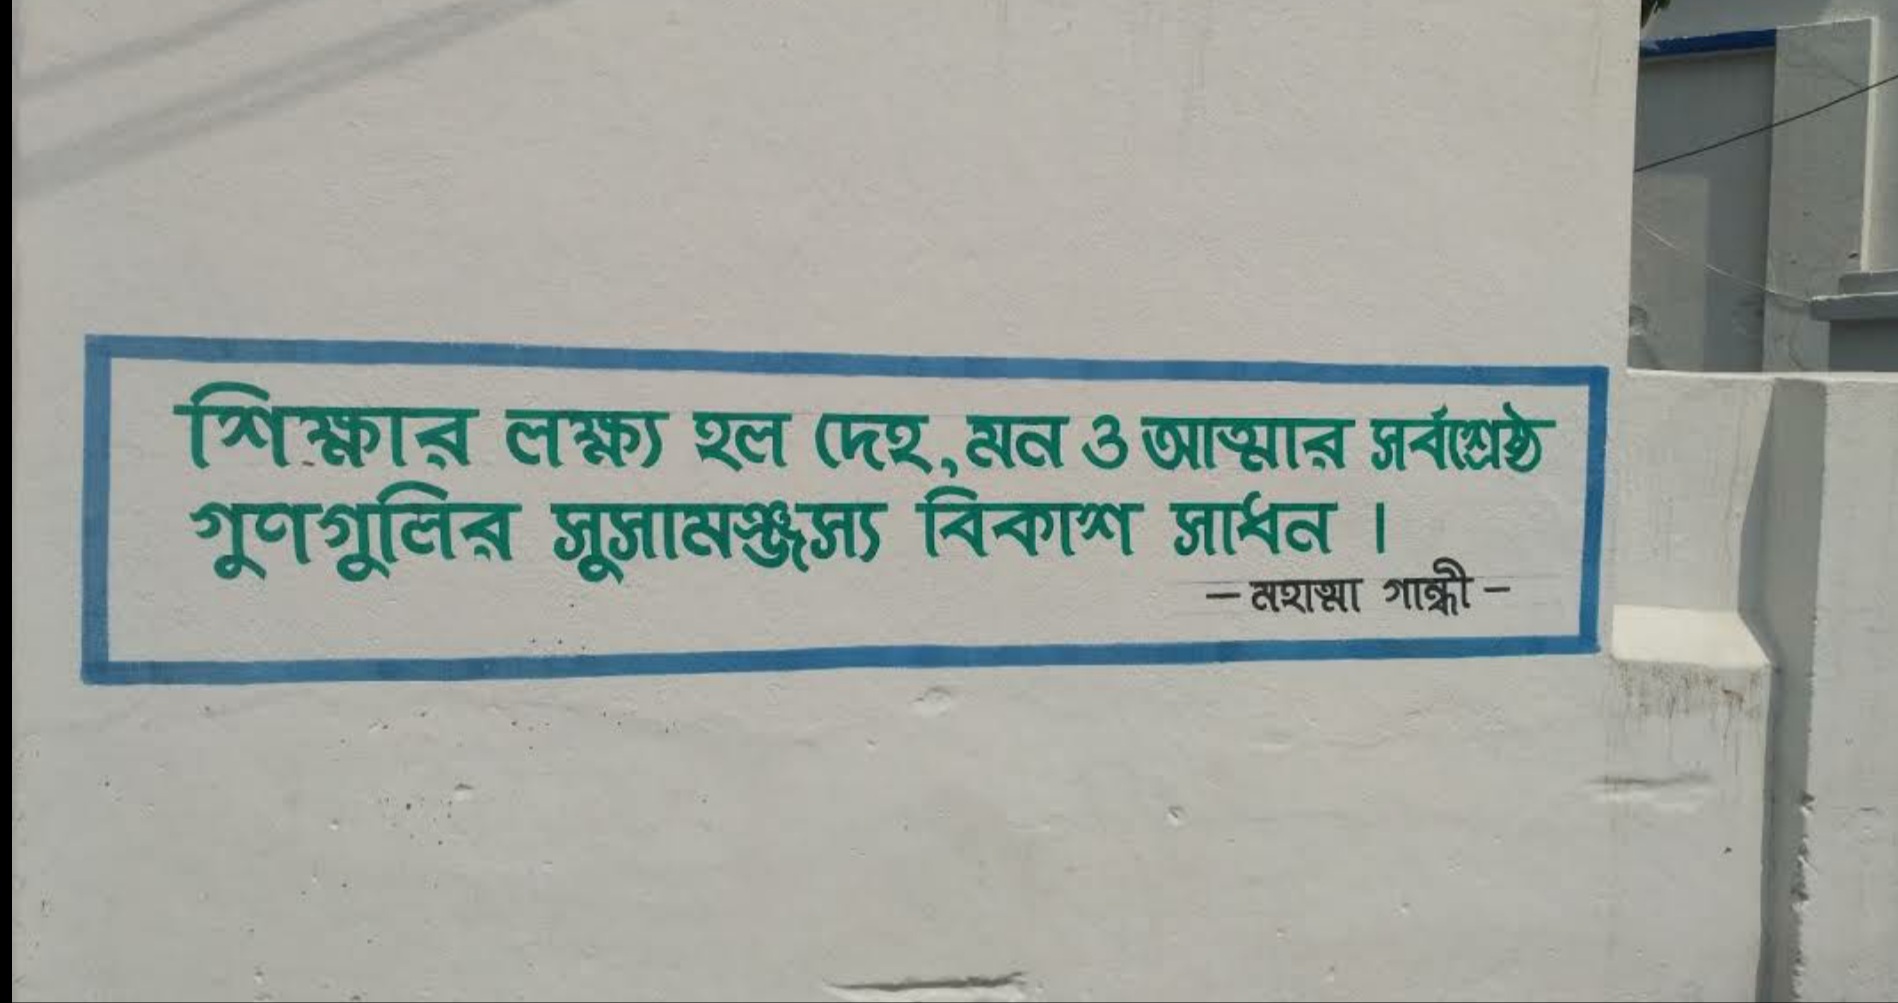 শিক্ষার লক্ষ্য হল দেহ, মন ও আত্মার সর্বশ্রেষ্ঠ
গুণগুলির সুসামঞ্জস্য বিকাশ সাধন ।
— মহাত্মা গান্ধী —